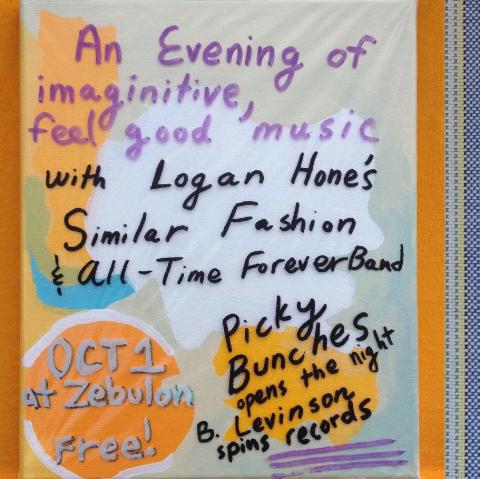 An Evening of
imaginitive,
feel good music
with Logan Hone's
Similar Fashion
& All-Time ForeverBand
Picky
Bunches
opens the night
B. Levinson
spins records
OCT 1
at Zebulon
Free!